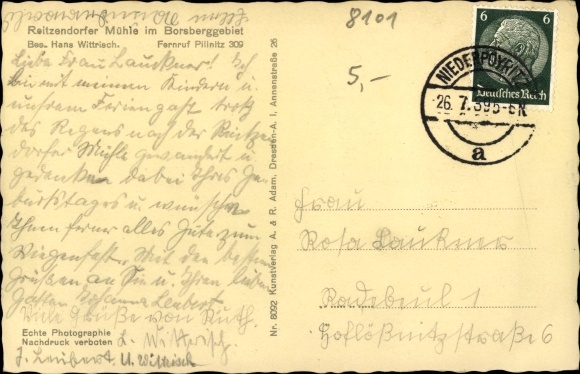 Reitzendorfer Mühle im Borsberggebiet
Bes. Hans Wittrisch. Fernruf Pillnitz 309
Liebe Frau Laukner! Ich
bin mit meinen Kindern u.
unsrem Feriengast trotz
des Regens nach der Reitzen
dorfer Mühle gewandert u.
gedenken dabei Ihres Ge-
burtstages u. wünschen
Ihnen ferner alles Gute zum
Wiegenfest. Mit den besten
Grüßen an Sie u. Ihren lieben
Gatten Susanna Leubert
Viele Grüße von Ruth.
Echte Photographie
Nachdruck verboten
L. Wittrisch
J. Leubert. U. Wittrisch
Nr. 8092 Kunstverlag A. & R. Adam, Dresden-A. 1, Annenstraße 26
8101
5,-
6 6
Deutsches Reich
NIEDERPOYRITZ
26.7.39
a
Frau
Rosa Laukner
Radebeul 1
Hoflößnitzstraße 6